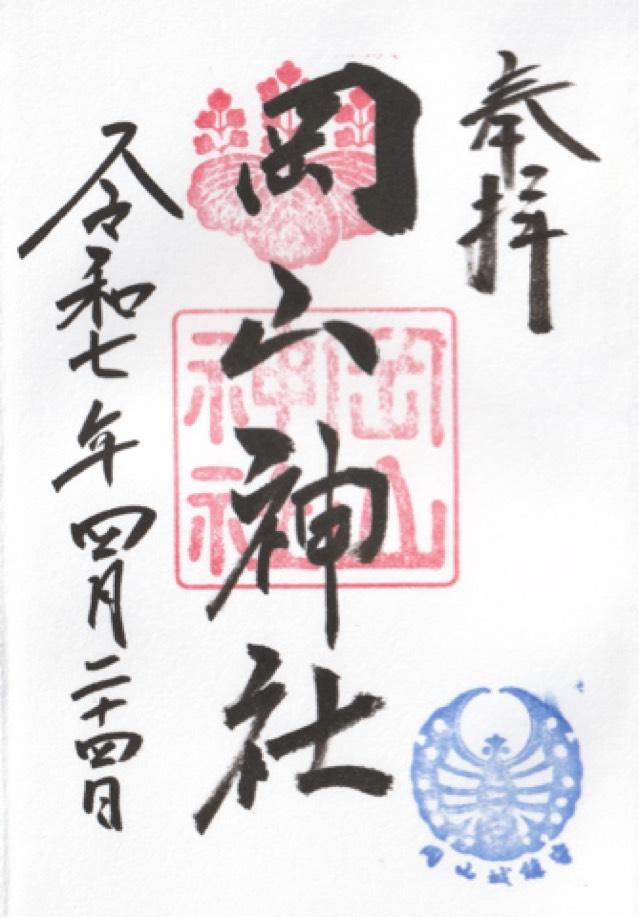 奉拝
岡山神社
岡山神社
令和七年四月二十四日
岡山城鎮守